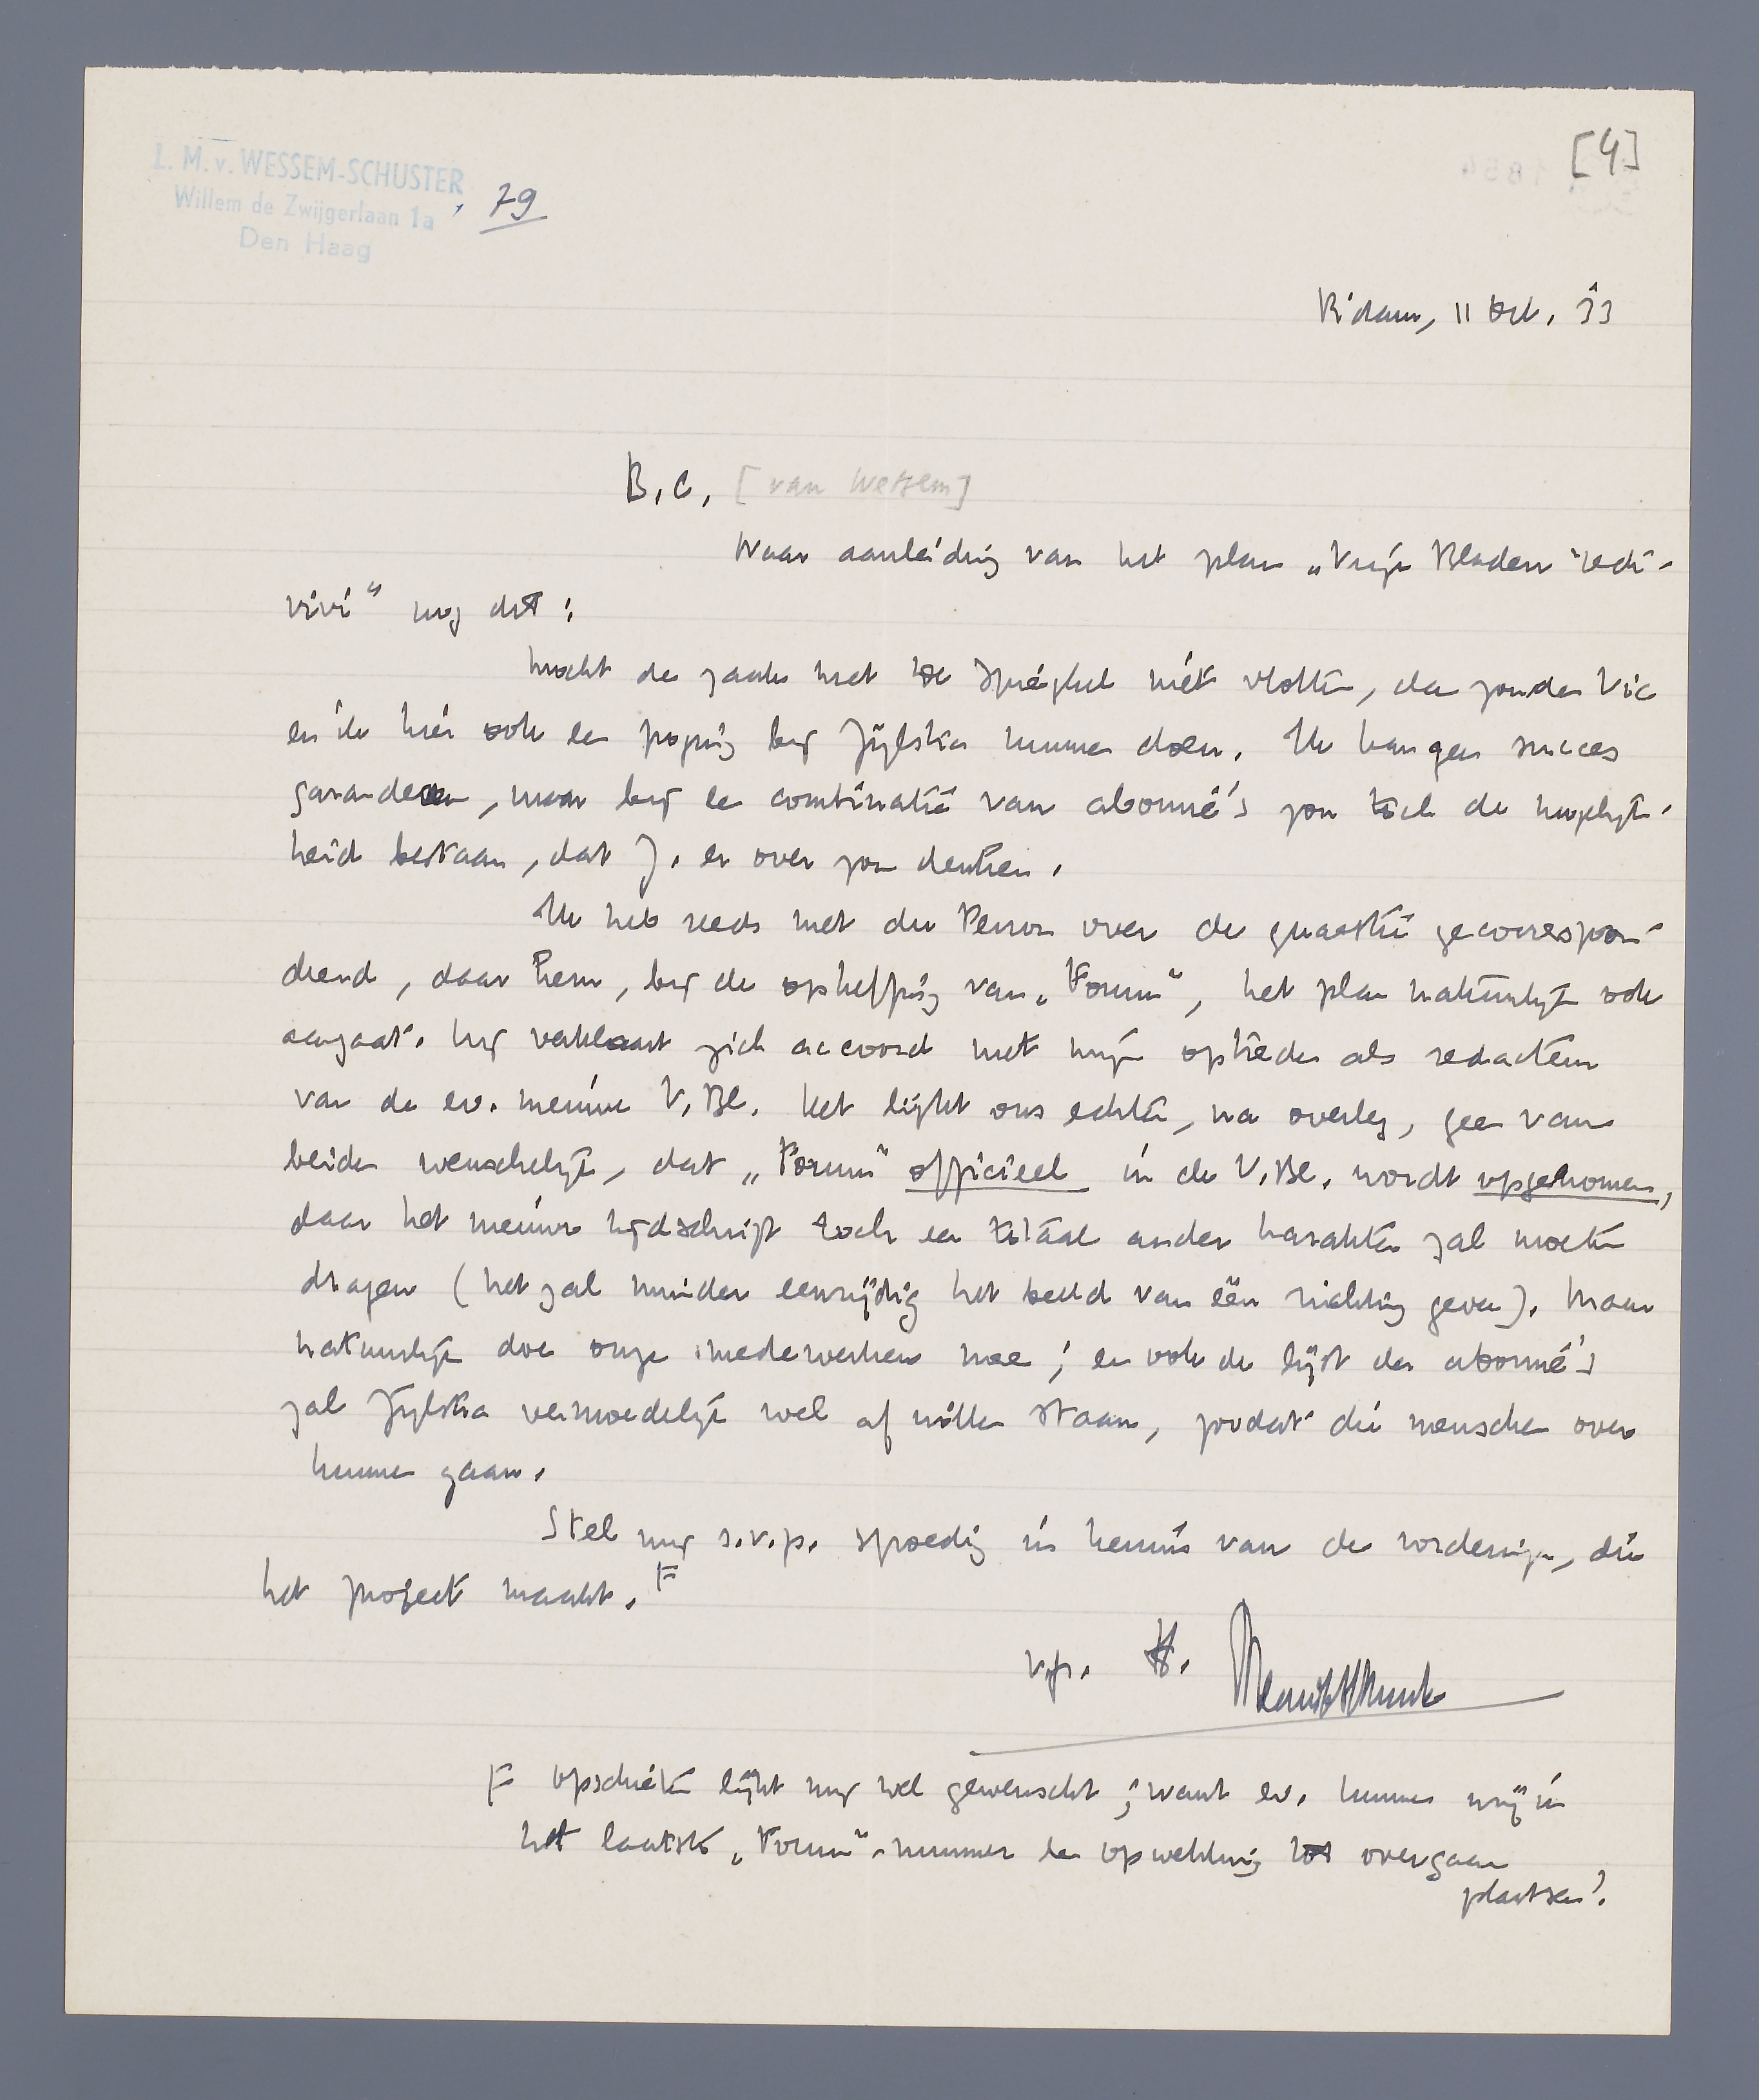 [4]
L. M. v. WESSEM-SCHUSTER
Willem de Zwijgerlaan 1a, 79
Den Haag
R'dam, 11 Oct. 33
B.C. [van Wessem]
Naar aanleiding van het plan „Vrije Bladen redi-
vivi" nog dit:
Mocht de zaak met De Spieghel niet vlotten, dan zouden Vic
en ik hier ook een poging bij Zijlstra kunnen doen. Ik kan geen succes
garandeeren, maar bij een combinatie van abonné's zou toch de mogelijk-
heid bestaan, dat Z. er over zou denken.
Ik heb reeds met du Perron over de quaestie gecorrespon-
deerd, daar hem, bij de opheffing van „Forum", het plan natuurlijk ook
aangaat. Hij verklaart zich accoord met mijn optreden als redacteur
van de ev. nieuwe V. Bl. Het lijkt ons echter, na overleg, geen van
beiden wenschelijk, dat „Forum" officieel in de V. Bl. wordt opgenomen,
daar het nieuwe tijdschrift toch een totaal ander karakter zal moeten
dragen (het zal minder eenzijdig het beeld van één richting geven). Maar
natuurlijk doen onze medewerkers mee; en ook de lijst der abonné's
zal Zijlstra vermoedelijk wel af willen staan, zoodat die menschen over
kunnen gaan.
Stel mij s.v.p. spoedig in kennis van de vorderingen, die
het project maakt. F
vr. gr. H.
Menno ter Braak
F Opschieten lijkt mij wel gewenscht; want ev. kunnen wij in
het laatste „Forum"-nummer een opwekking tot overgaan
plaatsen!